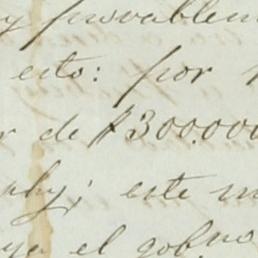 y favorablem
esto: por
r de $300.000
este m
ya el gobno